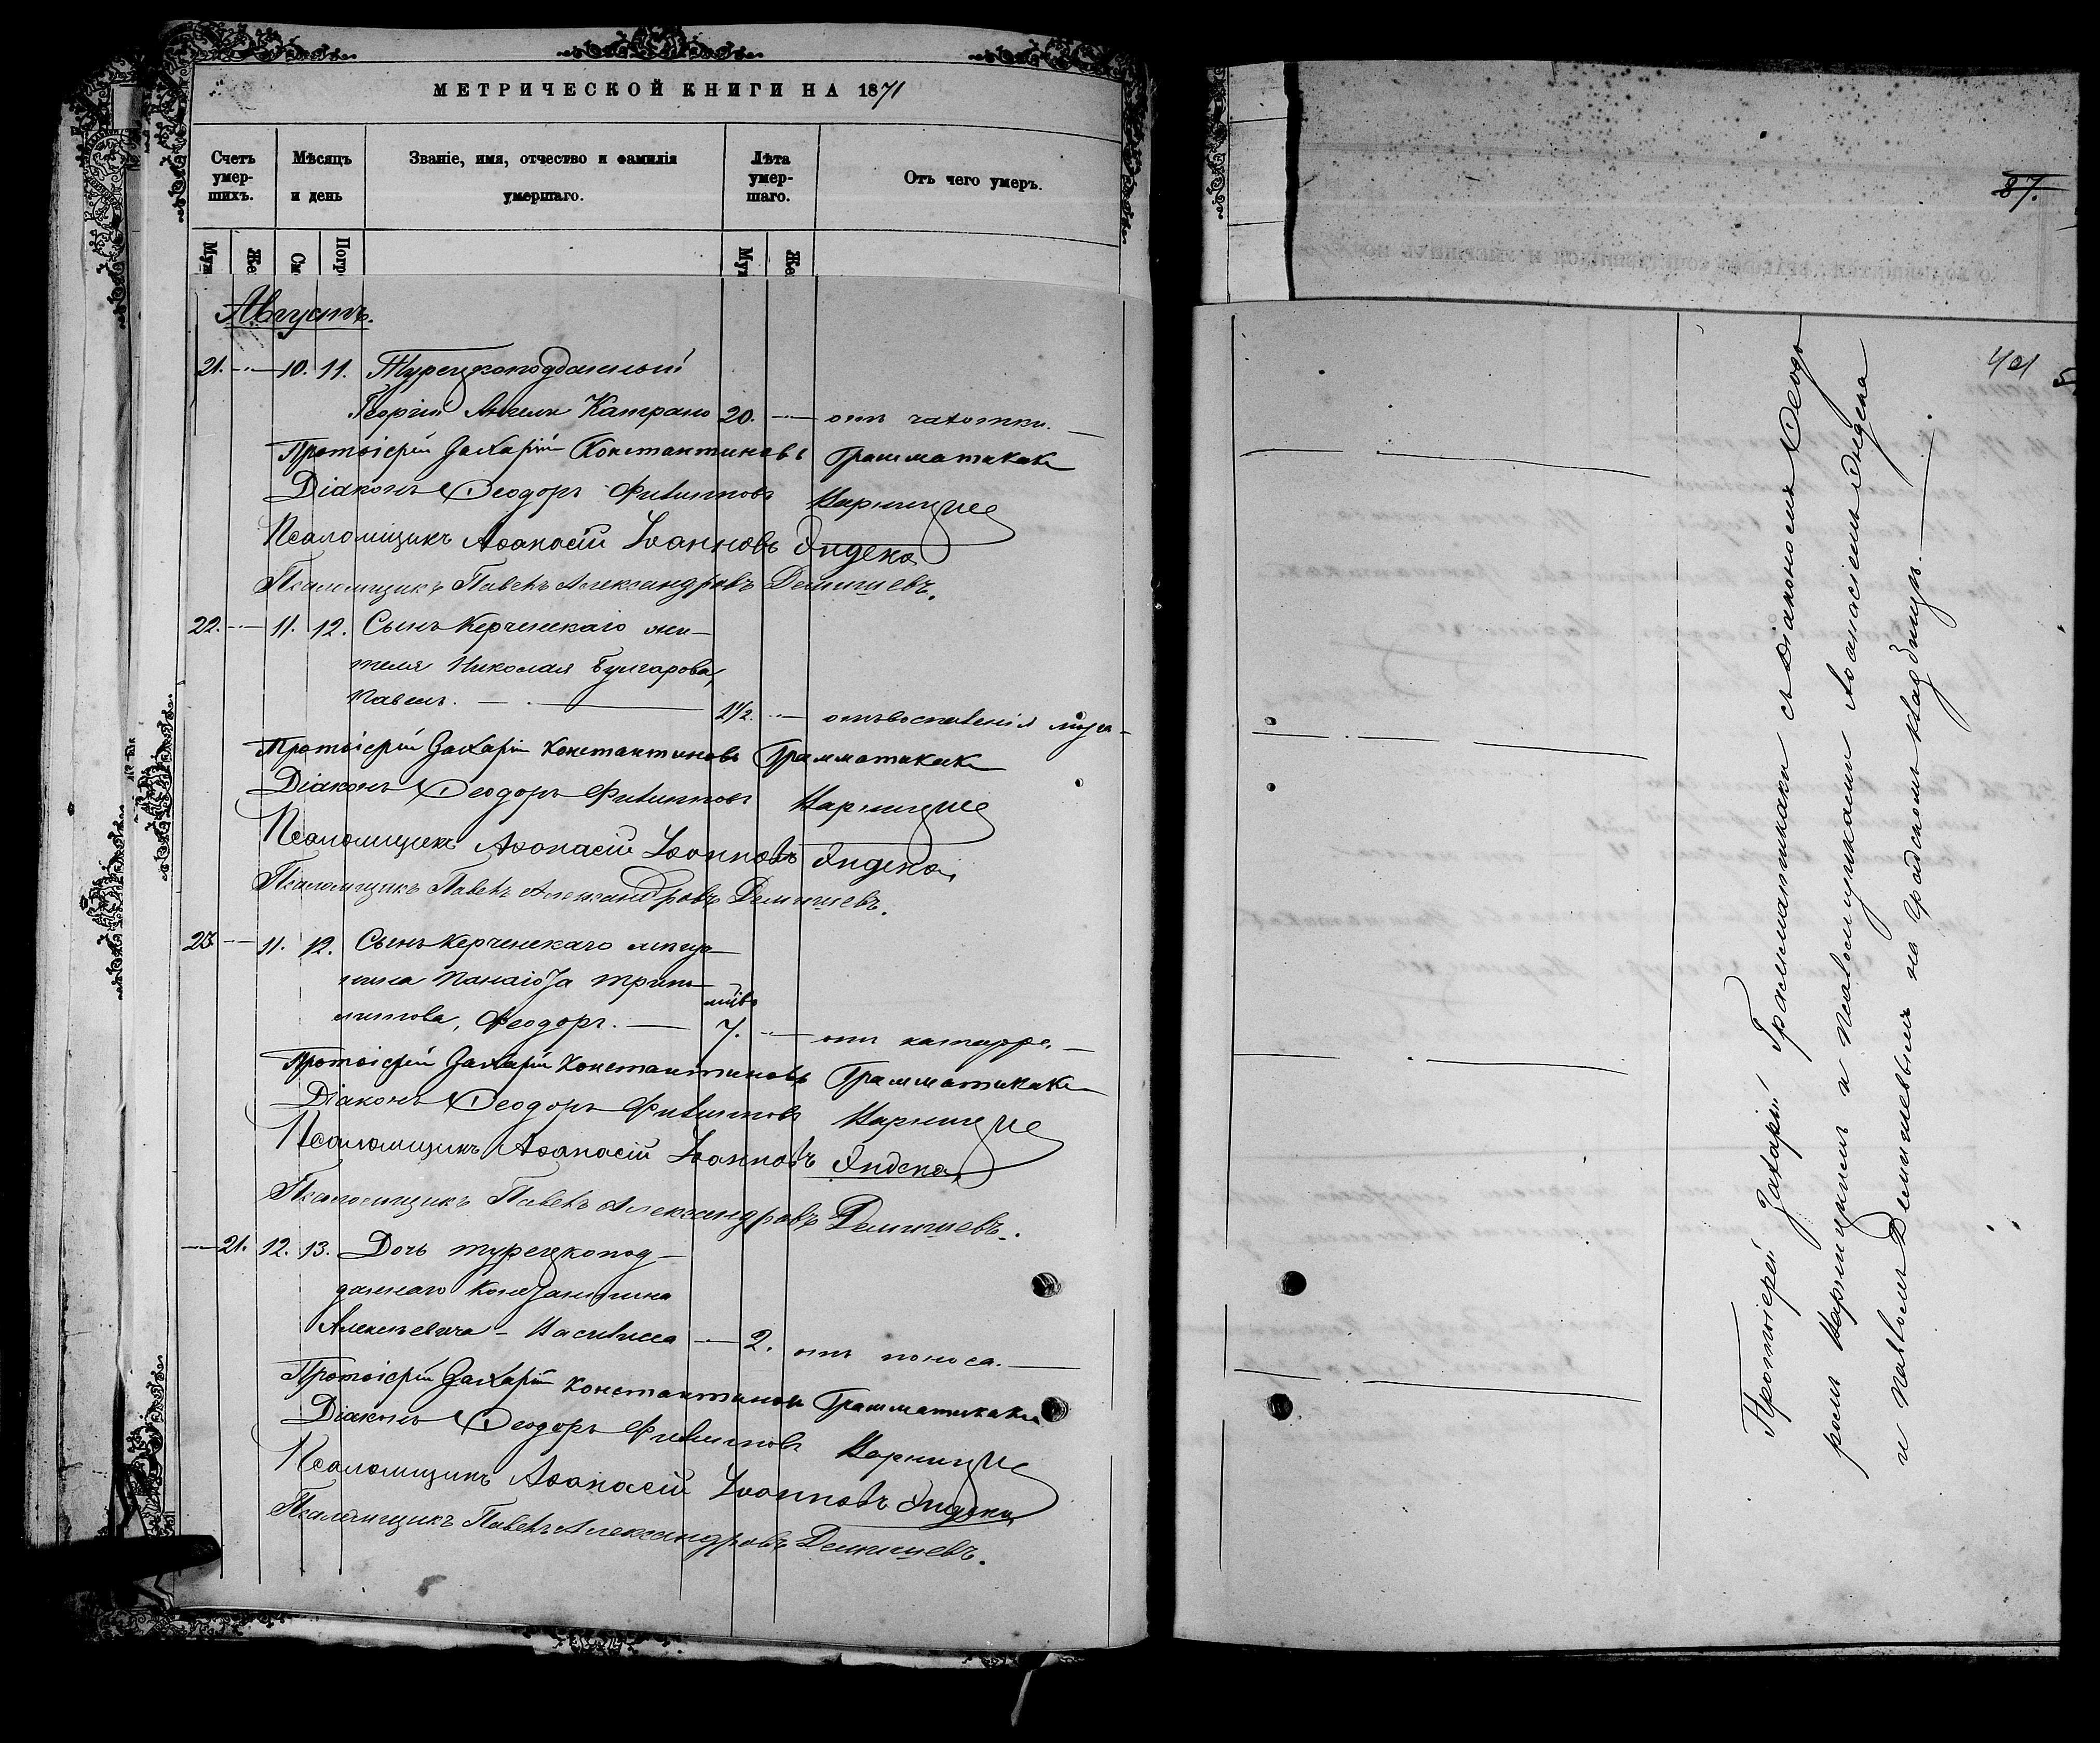 МЕТРИЧЕСКОЙ КНИГИ НА 1871
Счетъ умер-шихъ.
Мѣсяцъ и день
Званіе, имя, отчество и фамилія умершаго.
Лѣта умер-шаго.
Отъ чего умеръ.
Муж Же См Погр Муж Же
Августъ.
21. — 10. 11. Турецкоподданный
Георгій Ангели Катрано 20. — отъ чахотки. —
Протоіерей Захарій Константиновъ Грамматикаки
Діаконъ Ѳеодоръ Филипповъ
Псаломщикъ Аѳанасій Іоанновъ Яндека
Псаломщикъ Павелъ Александровъ Демишевъ.
22. — 11. 12. Сынъ Керченскаго жи-
теля Николая Булгарова,
Павелъ. — 1 1/2. — отъ воспаленія
Протоіерей Захарій Константиновъ Грамматикаки
Діаконъ Ѳеодоръ Филипповъ
Псаломщикъ Аѳанасій Іоанновъ Яндека
Псаломщикъ Павелъ Александровъ Демишевъ.
23 — 11. 12. Сынъ Керченскаго мѣща-
нина Панаіота
Ѳеодоръ. — 7. — отъ катарра. —
Протоіерей Захарій Константиновъ Грамматикаки
Діаконъ Ѳеодоръ Филипповъ
Псаломщикъ Аѳанасій Іоанновъ Яндека
Псаломщикъ Павелъ Александровъ Демишевъ.
— 21. 12. 13. Дочь турецкопод-
даннаго Константина
Алексѣевича - Василисса — 2. отъ поноса. —
Протоіерей Захарій Константиновъ Грамматикаки
Діаконъ Ѳеодоръ Филипповъ
Псаломщикъ Аѳанасій Іоанновъ Яндека
Псаломщикъ Павелъ Александровъ Демишевъ.
87.
401
Протоіерей Захарій Грамматикаки съ Діакономъ Ѳеодо
ромъ и псаломщиками Аѳанасіемъ Яндека
и Павломъ Демишевымъ на градскомъ кладбищѣ. —